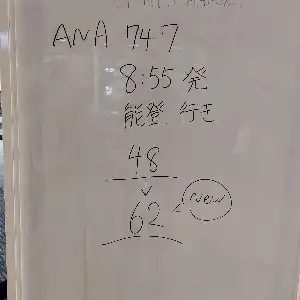 ANA 747
8:55 発
能登 行き
48
↓
62
New